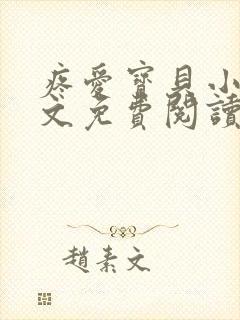 疼愛寶貝小
文免費閱讀
趙素文